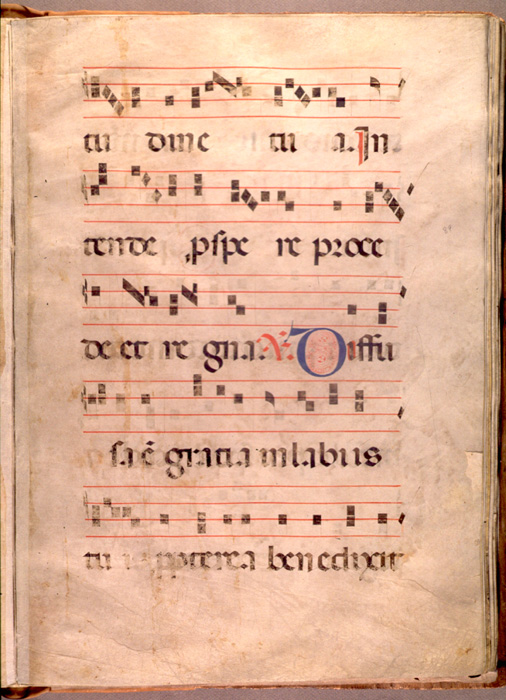 tudine tua. In
tende pspe re proce
de et re gna. V. Diffu
sa ē gratia in labiis
tuis ppterea benedixit